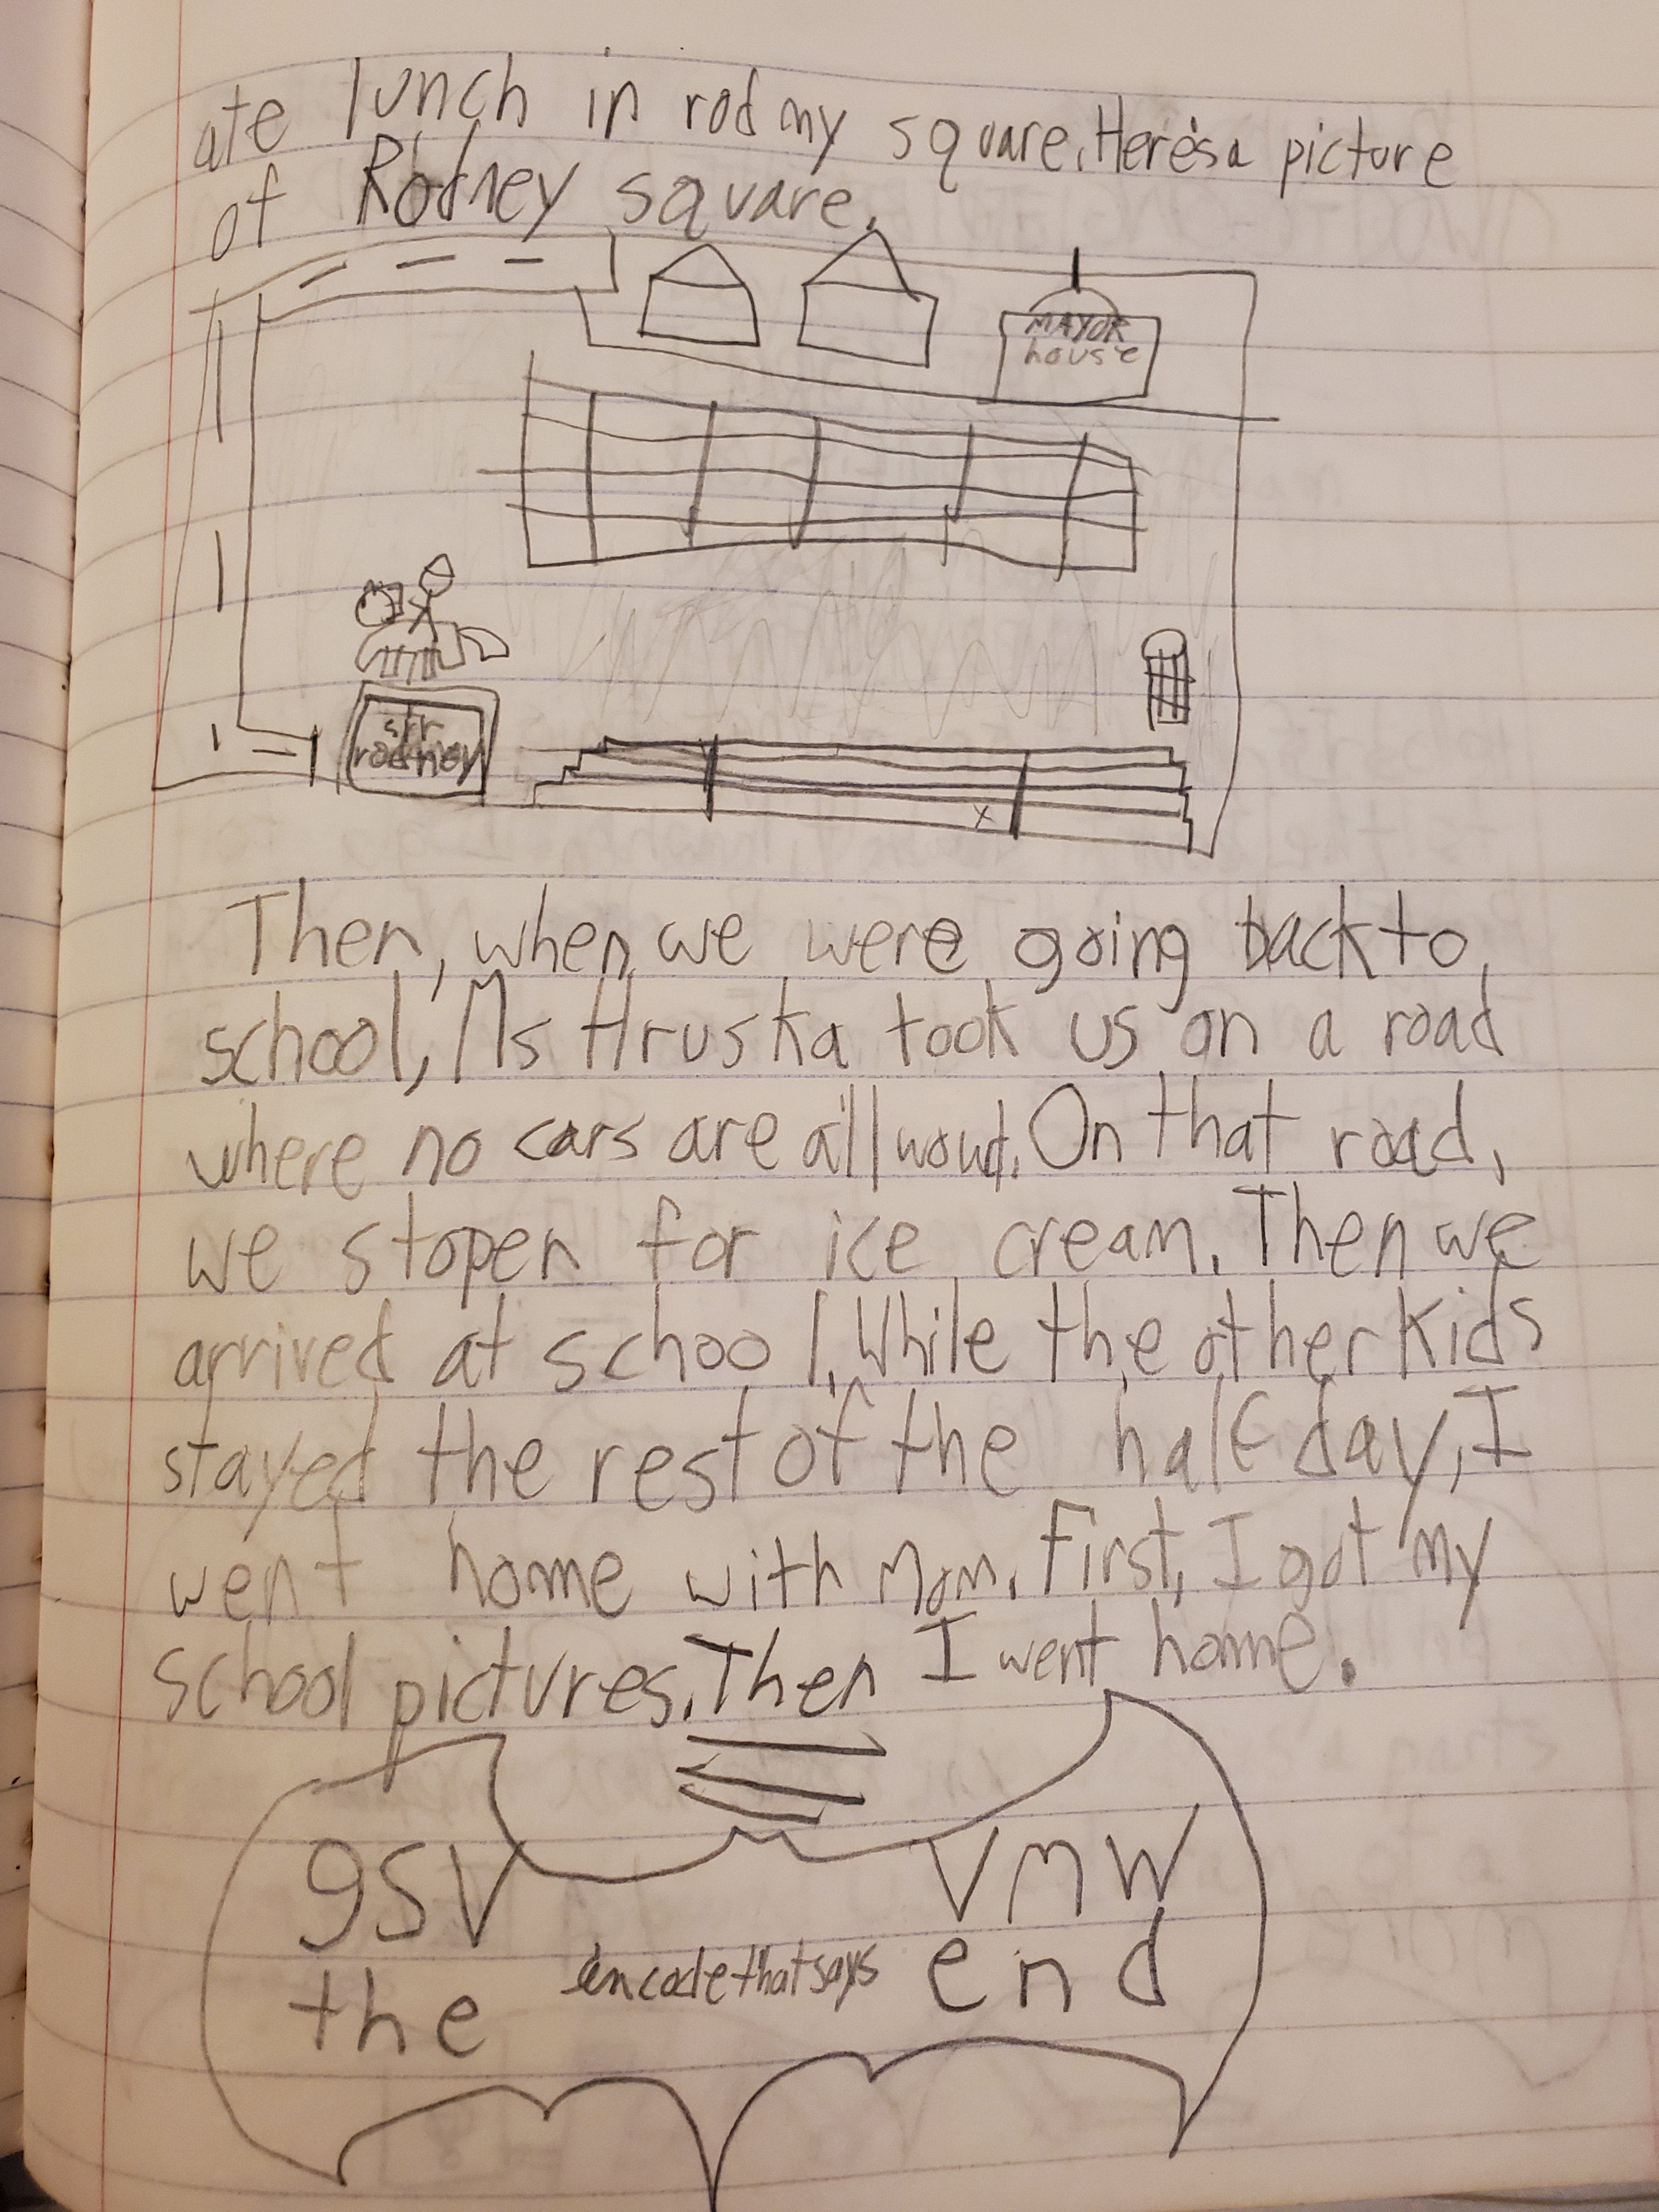 ate lunch in rodmy square. Here's a picture
of Rodney square.
MAYOR
house
sir
rodney
Then, when we were going back to
school, Ms Hruska took us on a road
where no cars are all woud. On that road,
we stopen for ice cream. Then we
arrived at school. While the other kids
stayed the rest of the half day, I
went home with Mom. First, I got my
school pictures. Then I went home.
gsv vmw
the encode that says end